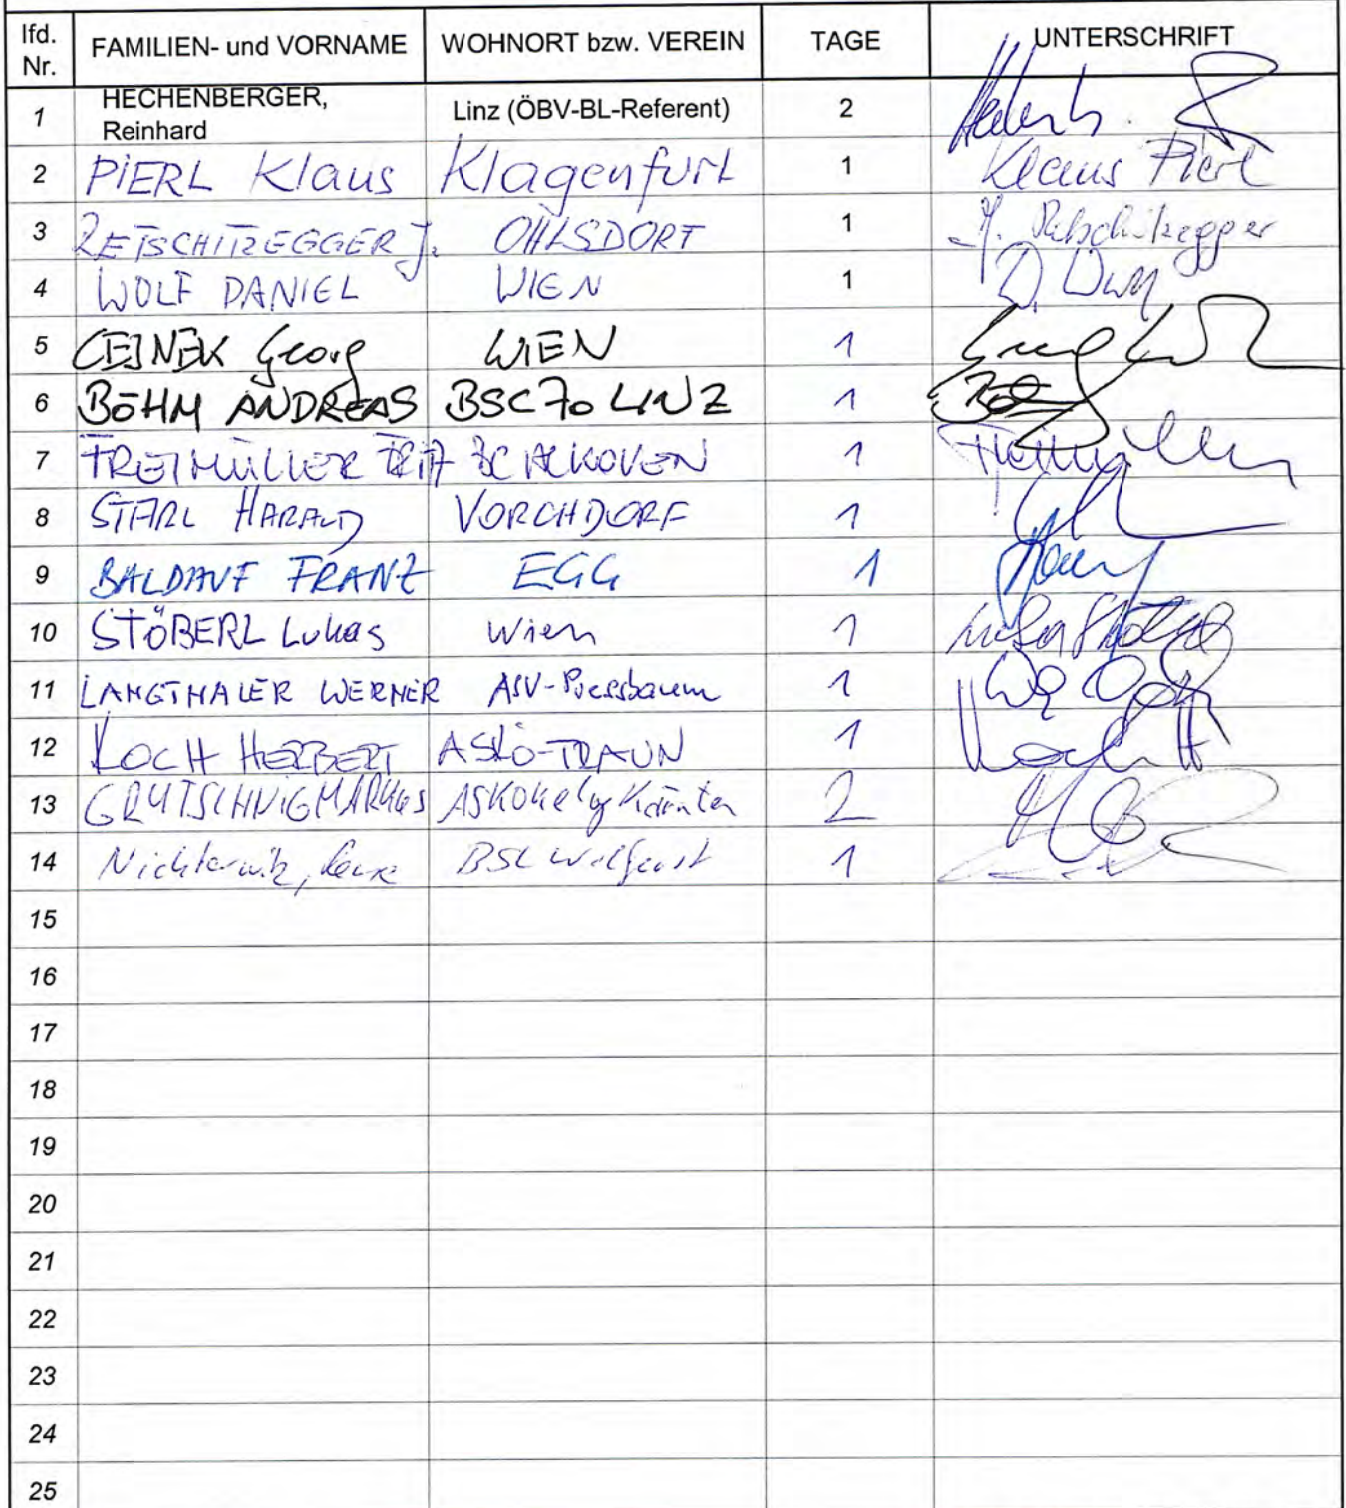 lfd. Nr. FAMILIEN- und VORNAME WOHNORT bzw. VEREIN TAGE UNTERSCHRIFT
1 HECHENBERGER, Reinhard Linz (ÖBV-BL-Referent) 2
2 PIERL Klaus Klagenfurt 1 Klaus Pierl
3 RETSCHITZEGGER J. OHLSDORF 1 J. Retschitzegger
4 WOLF DANIEL WIEN 1
5 CEJNEK Georg WIEN 1
6 BÖHM ANDREAS BSC 70 LINZ 1
7 FREIMÜLLER BC ALKOVEN 1
8 STARL HARALD VORCHDORF 1
9 BALDAUF FRANZ EGG 1
10 STÖBERL Lukas Wien 1
11 LANGTHALER WERNER ASV-Pressbaum 1
12 KOCH HERBERT ASKÖ-TRAUN 1
13 GRUTSCHNIG MARKUS ASKÖ Kärnten 2
14 BSC 1
15
16
17
18
19
20
21
22
23
24
25